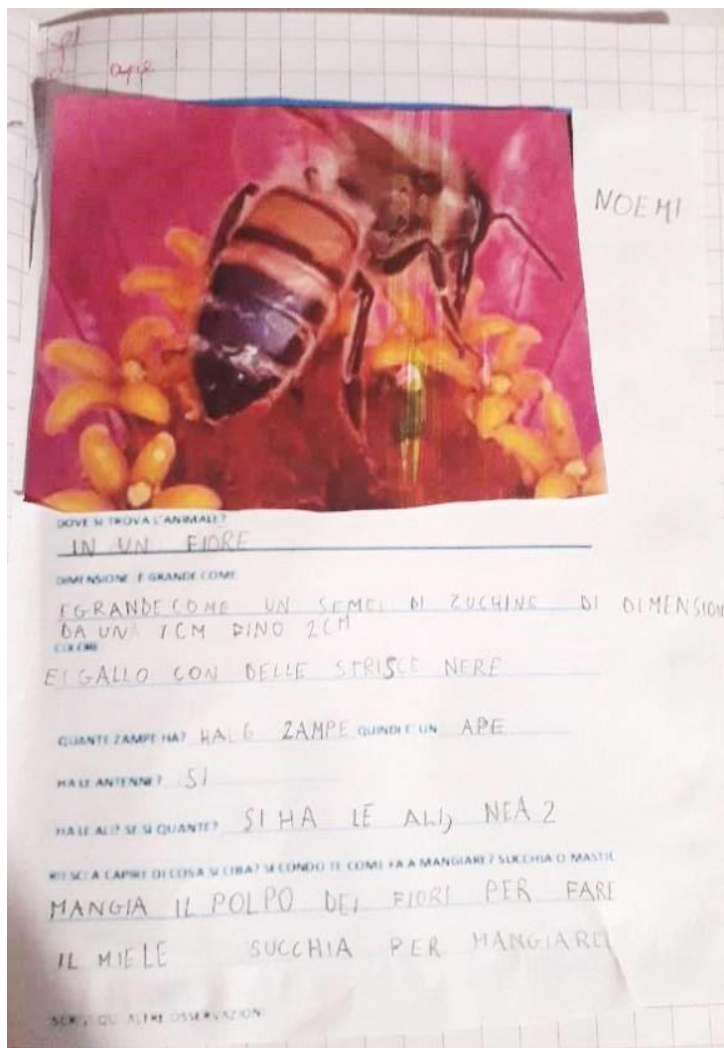 L'
ape
NOEMI
DOVE SI TROVA L'ANIMALE?
IN UN FIORE
DIMENSIONE: È GRANDE COME
EGRANDECOME UN SEMEI DI ZUCHINE DI DIMENSION
DA UNA 1CM FINO 2CM
COLORE:
EIGALLO CON DELLE STRISCE NERE
QUANTE ZAMPE HA? HA 6 ZAMPE QUINDI E' UN APE
HA LE ANTENNE? SI
HA LE ALI? SE SI QUANTE? SI HA LE ALI, NEA 2
RIESCI A CAPIRE DI COSA SI CIBA? SECONDO TE COME FA A MANGIARE? SUCCHIA O MASTIC
MANGIA IL POLPO DEI FIORI PER FARE
IL MIELE SUCCHIA PER MANGIARE
SCRIVI QUI ALTRE OSSERVAZIONI